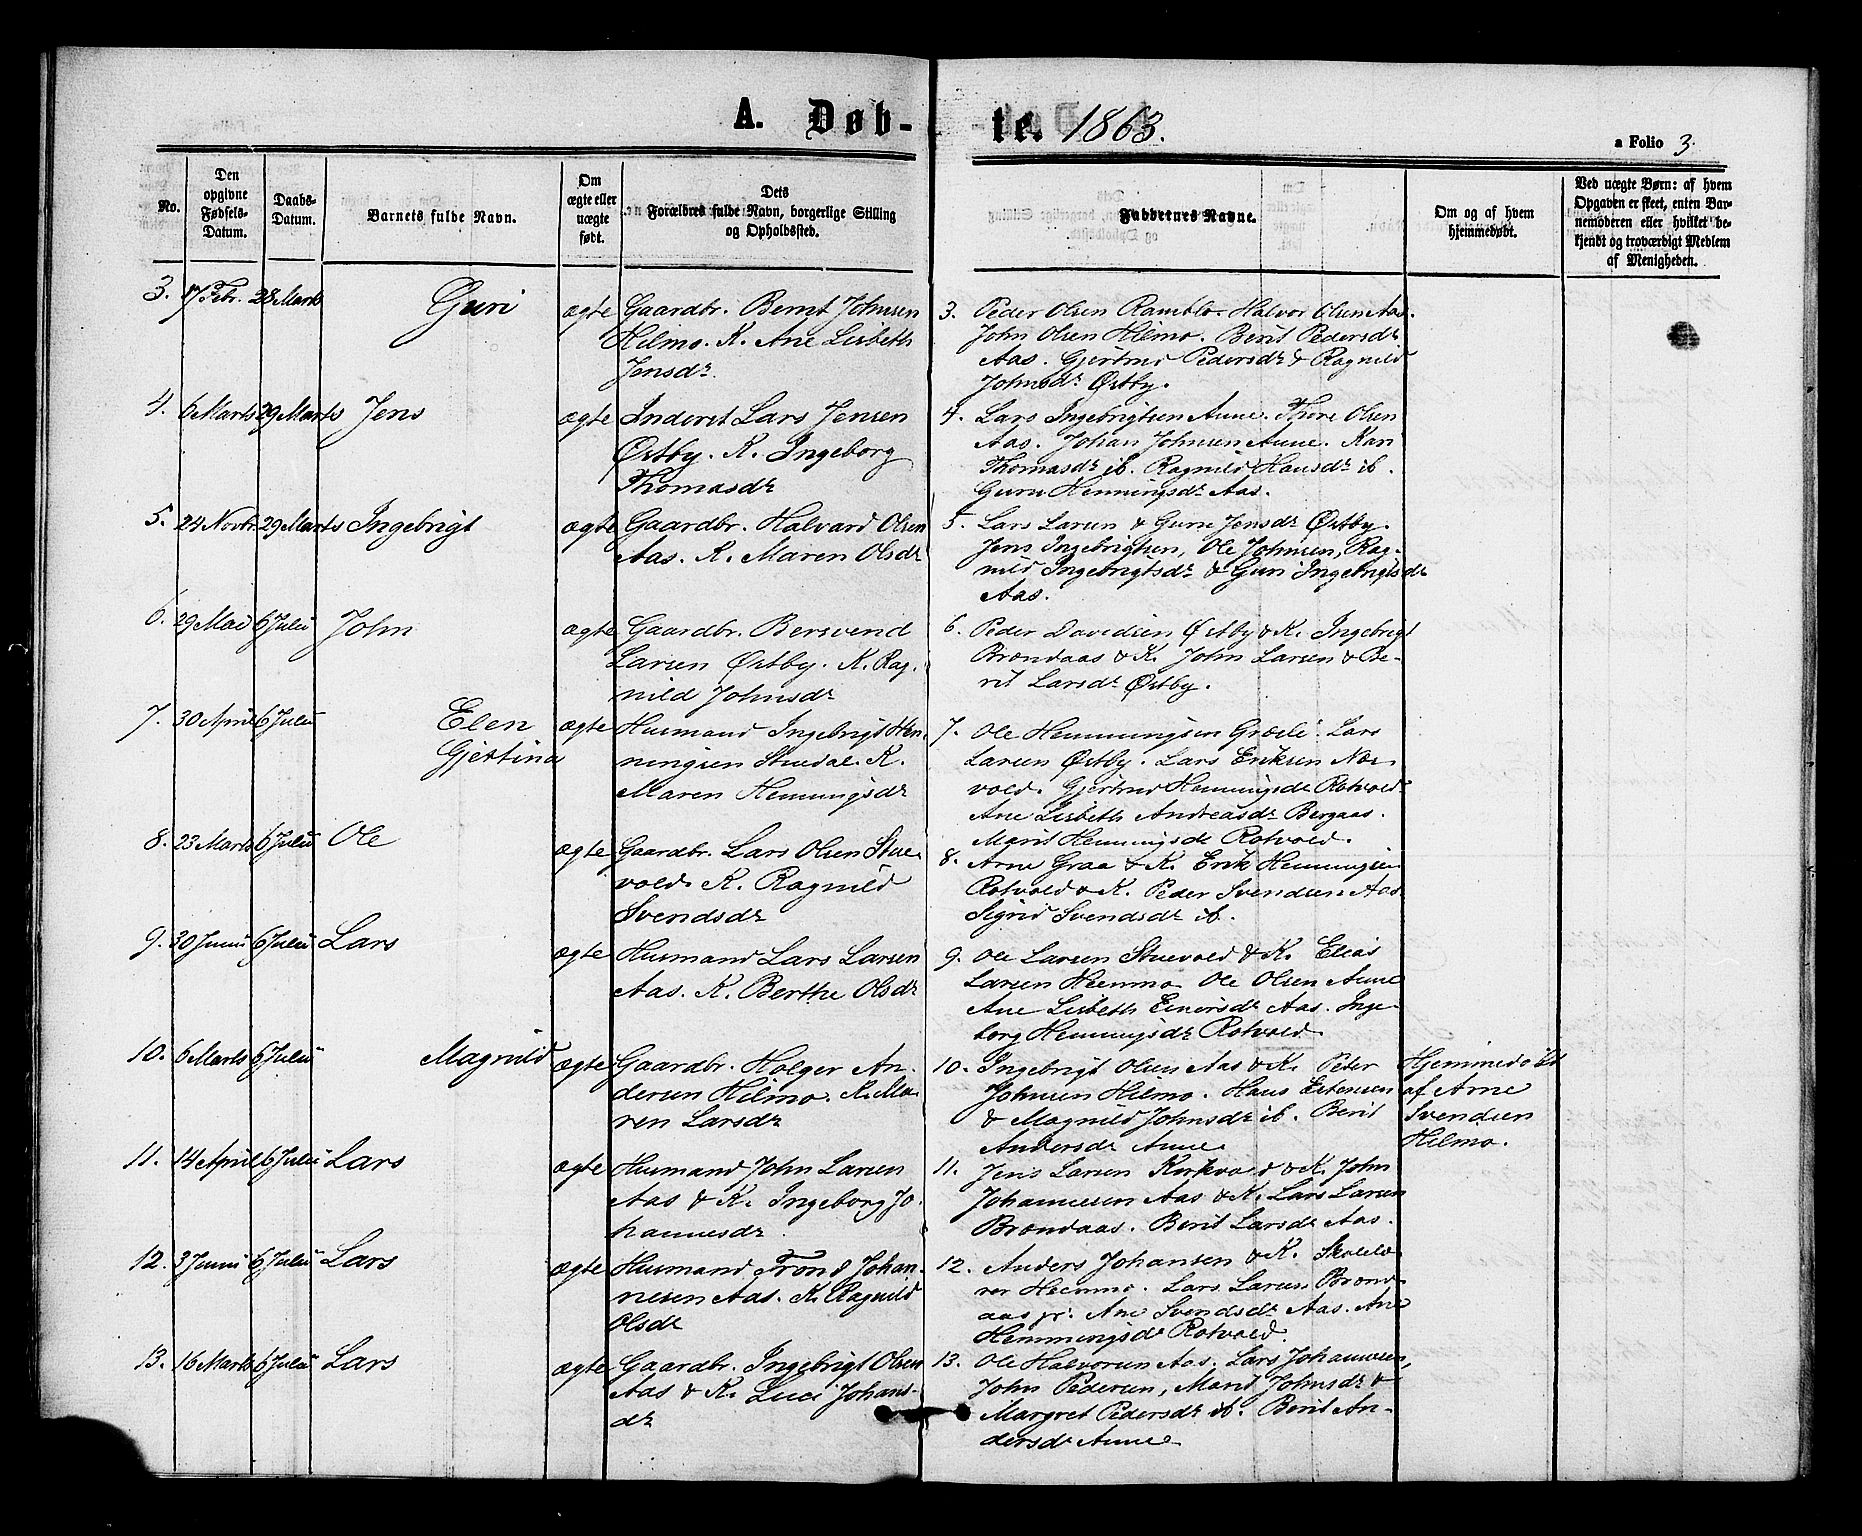 A. Døb-
te. 1863.
a Folio 3.
No.
Den
opgivne
Fødsels-
Datum.
Daabs-
Datum.
Barnets fulde Navn.
Om
ægte eller
uægte
født.
Dets
Forældres fulde Navn, borgerlige Stilling
og Opholdssted.
Faddernes Navne.
Om og af hvem
hjemmedøbt.
Ved uægte Børn: af hvem
Opgaven er skeet, enten Bar-
nemoderen eller hvilket be-
kjendt og troværdigt Medlem
af Menigheden.
3. 17 Febr. 28 Marts Guri ægte Gaardbr. Bernt Johnsen
Hilmo. K. Ane Lisbeth
Jensdr.
3. Peder Olsen Ramblo. Halvor Olsen Aas.
John Olsen Hilmo. Berit Pedersdr
Aas. Gjertrud Pedersdr & Ragnild
Johnsdr Østby.
4. 6 Marts 29 Marts Jens ægte Inderst Lars Jensen
Østby. K. Ingeborg
Thomasdr
4. Lars Ingebrigtsen Aune. Thore Olsen
Aas. Johan Johnsen Aune. Kari
Thomasdr ib. Ragnild Hansdr ib.
Guru Henningsdr Aas.
5. 24 Novbr. 29 Marts Ingebrigt ægte Gaardbr. Halvard Olsen
Aas. K. Maren Olsdr
5. Lars Larsen & Guru Jensdr Østby.
Jens Ingebrigtsen, Ole Johnsen, Rag-
nild Ingebrigtsdr & Guri Ingebrigtsdr
Aas.
6. 29 Mai 6 Julii John ægte Gaardbr. Bersvend
Larsen Østby. K. Rag-
nild Johnsdr
6. Peder Davidsen Østby & K. Ingebrigt
Brændaas & K. John Larsen & Be-
rit Larsdr Østby.
7. 30 April 6 Julii Elen
Gjertina ægte Husmand Ingebrigt Hen-
ningsen Stuedal. K.
Maren Hemmingsdr
7. Ole Hemmingsen Græsli. Lars
Larsen Østby. Lars Eriksen Næs-
vold. Gjertrud Hemmingsdr Rotvold
Ane Lisbeth Andreasdr Bergaas.
Marit Hemmingsdr Rotvold.
8. 23 Marts 6 Julii Ole ægte Gaardbr. Lars Olsen Stue-
vold. K. Ragnild
Svendsdr
8. Arne Graa & K. Erik Hemmingsen
Rotvold & K. Peder Svendsen Aas
Sigrid Svendsdr ib.
9. 30 Junii 6 Julii Lars ægte Husmand Lars Larsen
Aas. K. Berthe Olsdr
9. Ole Larsen Stuevold & K. Elias
Larsen Hiemmo. Ole Olsen Aune
Ane Lisbeth Einersdr Aas. Inge-
borg Hemmingsdr Rotvold.
10. 6 Marts 6 Julii Magnild ægte Gaardbr. Holger An-
dersen Hilmo. K. Ma-
ren Larsdr
10. Ingebrigt Olsen Aas & K. Peter
Johnsen Hilmo. Hans Estensen
& Magnild Johnsdr ib. Berit
Andersdr Aune.
Hjemmedøbt
af Arne
Svendsen
Hilmo.
11. 14 April 6 Julii Lars ægte Husmand John Larsen
Aas & K. Ingeborg Jo-
hannesdr
11. Jens Larsen Kirkvold & K. John
Johannesen Aas & K. Lars Larsen
Brændaas. Berit Larsdr Aas.
12. 3 Junii 6 Julii Lars ægte Husmand Trond Johan-
nesen Aas. K. Ragnild
Olsdr
12. Anders Johansen & K. Skolelæ-
rer Hiemmo. Lars Larsen Brænd-
aas jr. Ane Svendsdr Aas. Ane
Hemmingsdr Rotvold.
13. 16 Marts 6 Julii Lars ægte Gaardbr. Ingebrigt Olsen
Aas & K. Luci Johans-
dr
13. Ole Halvorsen Aas. Lars Johannesen,
John Pedersen, Marit Johnsdr &
Margret Pedersdr ib. Berit An-
dersdr Aune.